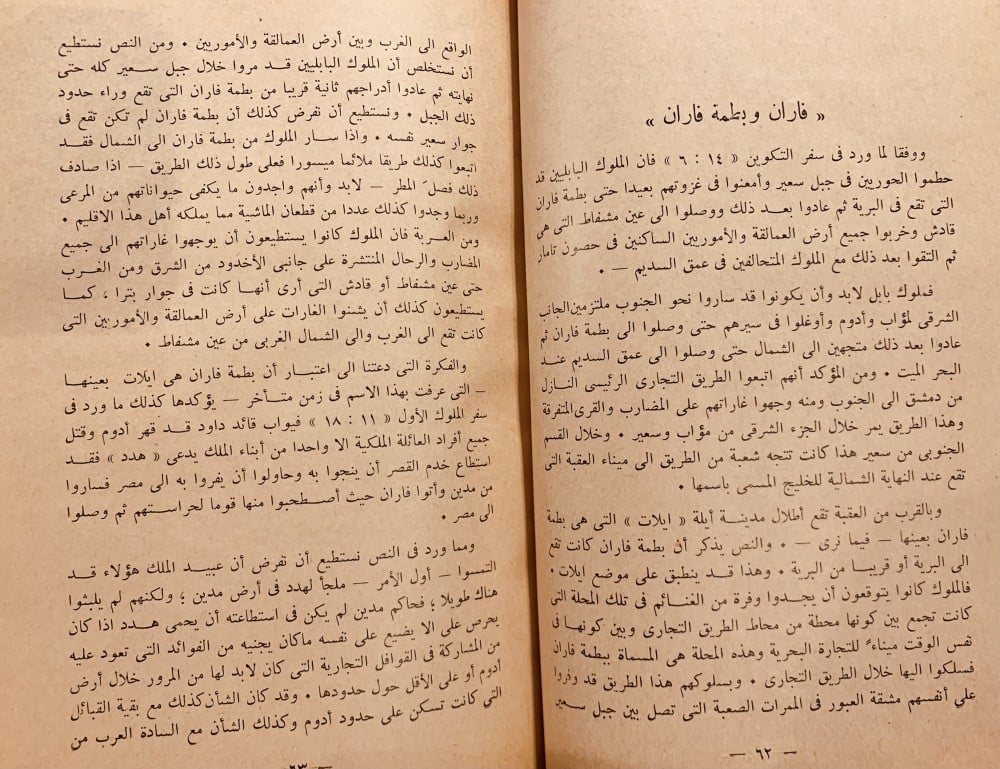 « فاران وبطمة فاران »
ووفقا لما ورد فى سفر التكوين « ١٤ : ٦ » فان الملوك البابليين قد
حطموا الحوريين فى جبل سعير وأمعنوا فى غزوتهم بعيدا حتى بطمة فاران
التى تقع فى البرية ثم عادوا بعد ذلك ووصلوا الى عين مشفاط التى هى
قادش وخربوا جميع أرض العمالقة والأموريين الساكنين فى حصون تامار
ثم التقوا بعد ذلك مع الملوك المتحالفين فى عمق السديم — •
فملوك بابل لابد وأن يكونوا قد ساروا نحو الجنوب ملتزمين الجانب
الشرقى لمؤاب وأدوم وأوغلوا فى سيرهم حتى وصلوا الى بطمة فاران ثم
عادوا بعد ذلك متجهين الى الشمال حتى وصلوا الى عمق السديم عند
البحر الميت • ومن المؤكد أنهم اتبعوا الطريق التجارى الرئيسى النازل
من دمشق الى الجنوب ومنه وجهوا غاراتهم على المضارب والقرى المتفرقة
وهذا الطريق يمر خلال الجزء الشرقى من مؤاب وسعير • وخلال القسم
الجنوبى من سعير هذا كانت تتجه شعبة من الطريق الى ميناء العقبة التى
تقع عند النهاية الشمالية للخليج المسمى باسمها •
وبالقرب من العقبة تقع أطلال مدينة أيلة « ايلات » التى هى بطمة
فاران بعينها — فيما نرى — • والنص يذكر أن بطمة فاران كانت تقع
الى البرية أو قريبا من البرية • وهذا قد ينطبق على موضع إيلات •
فالملوك كانوا يتوقعون أن يجدوا وفرة من الغنائم فى تلك المحلة التى
كانت تجمع بين كونها محطة من محاط الطريق التجارى وبين كونها فى
نفس الوقت ميناءً للتجارة البحرية وهذه المحلة هى المسماة ببطمة فاران
فسلكوا اليها خلال الطريق التجارى • وبسلوكهم هذا الطريق قد وفروا
على أنفسهم مشقة العبور فى الممرات الصعبة التى تصل بين جبل سعير
— ٦٢ —
الواقع الى الغرب وبين أرض العمالقة والأموريين • ومن النص نستطيع
أن نستخلص أن الملوك البابليين قد مروا خلال جبل سعير كله حتى
نهايته ثم عادوا أدراجهم ثانية قريبا من بطمة فاران التى تقع وراء حدود
ذلك الجبل • ونستطيع أن نفرض كذلك أن بطمة فاران لم تكن تقع فى
جوار سعير نفسه • واذا سار الملوك من بطمة فاران الى الشمال فقد
اتبعوا كذلك طريقا ملائما ميسورا فعلى طول ذلك الطريق — اذا صادف
ذلك فصل المطر — لابد وأنهم واجدون ما يكفى حيواناتهم من المرعى
وربما وجدوا كذلك عددا من قطعان الماشية مما يملكه أهل هذا الاقليم •
ومن العربة فان الملوك كانوا يستطيعون أن يوجهوا غاراتهم الى جميع
المضارب والرحال المنتشرة على جانبى الأخدود من الشرق ومن الغرب
حتى عين مشفاط أو قادش التى أرى أنها كانت فى جوار بترا ، كما
يستطيعون كذلك أن يشنوا الغارات على أرض العمالقة والأموريين التى
كانت تقع الى الغرب والى الشمال الغربى من عين مشفاط •
والفكرة التى دعتنا الى اعتبار أن بطمة فاران هى ايلات بعينها
— التى عرفت بهذا الاسم فى زمن متأخر — يؤكدها كذلك ما ورد فى
سفر الملوك الأول « ١١ : ١٨ » فيواب قائد داود قد قهر أدوم وقتل
جميع أفراد العائلة الملكية الا واحدا من أبناء الملك يدعى « هدد » فقد
استطاع خدم القصر أن ينجوا به وحاولوا أن يفروا به الى مصر فساروا
من مدين وأتوا فاران حيث أصطحبوا منها قوما لحراستهم ثم وصلوا
الى مصر •
ومما ورد فى النص نستطيع أن نفرض أن عبيد الملك هؤلاء قد
التمسوا — أول الأمر — ملجأ لهدد فى أرض مدين ؛ ولكنهم لم يلبثوا
هناك طويلا ؛ فحاكم مدين لم يكن فى استطاعته أن يحمى هدد اذا كان
يحرص على الا يضيع على نفسه ماكان يجنيه من الفوائد التى تعود عليه
من المشاركة فى القوافل التجارية التى كان لابد لها من المرور خلال أرض
أدوم أو على الأقل حول حدودها • وقد كان الشأن كذلك مع بقية القبائل
التى كانت تسكن على حدود أدوم وكذلك الشأن مع السادة العرب من
— ٦٣ —